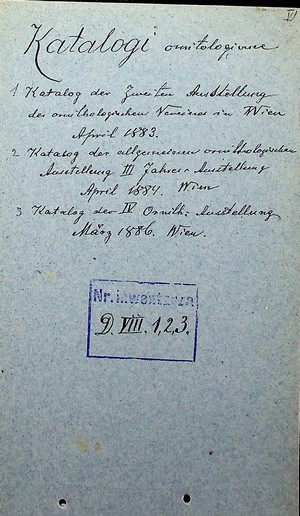 VI
Katalogi ornitologiczne
1 Katalog der Zweiten Ausstellung
des ornithologischen Vereines in Wien
April 1883.
2 Katalog der allgemeinen ornithologischen
Ausstellung III Jahres Ausstellung
April 1884. Wien
3 Katalog der IV Ornith. Ausstellung
März 1886. Wien.
Nr. inwentarza
D. VIII. 1,2,3.